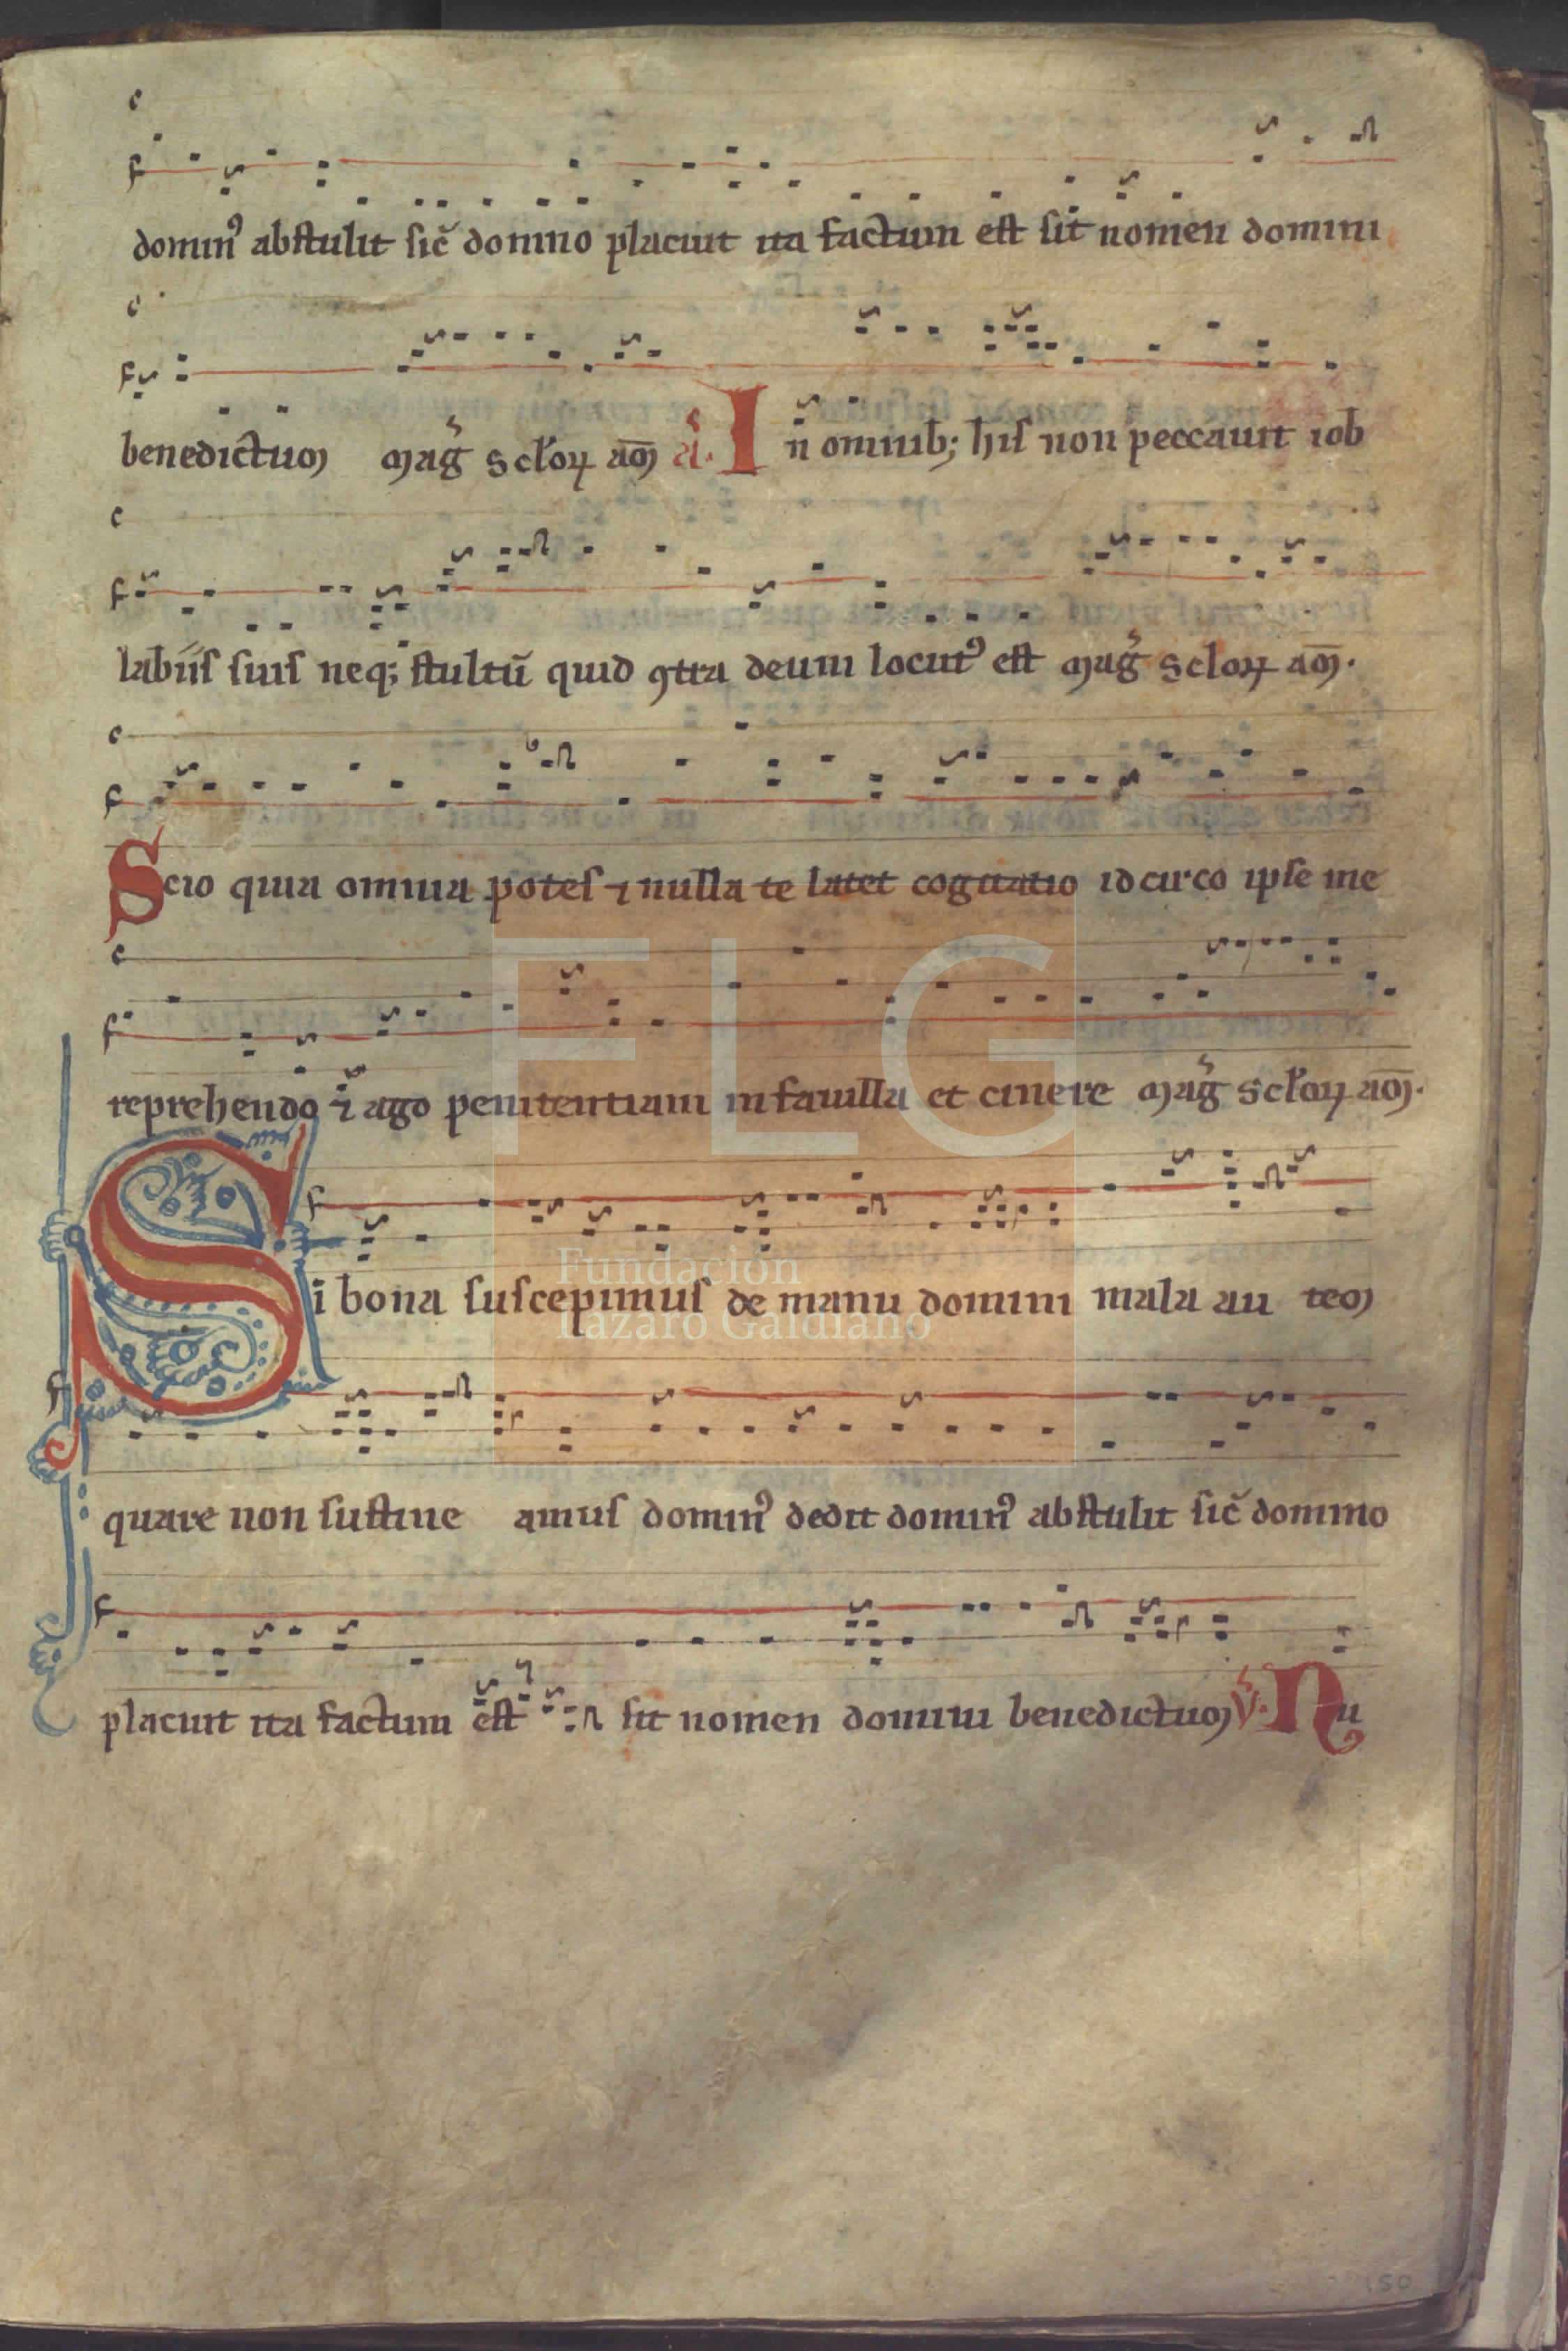 dominꝰ abstulit sic̄ domino placuit ita factum est sit nomen domini
benedictum mag̃ scl̃oꝝ am̄ a͛. In omnib; his non peccauit iob
labiis suis neq; stultū quid ꝯtra deum locutꝰ est mag̃ scloꝝ am̄.
Scio quia omnia potes ⁊ nulla te latet cogitatio idcirco ipse me
reprehendo ⁊ ago penitentiam in fauilla et cinere mag̃ scl̃oꝝ am̄.
Si bona suscepimus de manu domini mala au tem
quare non sustine amus dominꝰ dedit dominꝰ abstulit sic̄ domino
placuit ita factum est sit nomen domini benedictum V. Nu
FLG
Fundación
Lázaro Galdiano
150